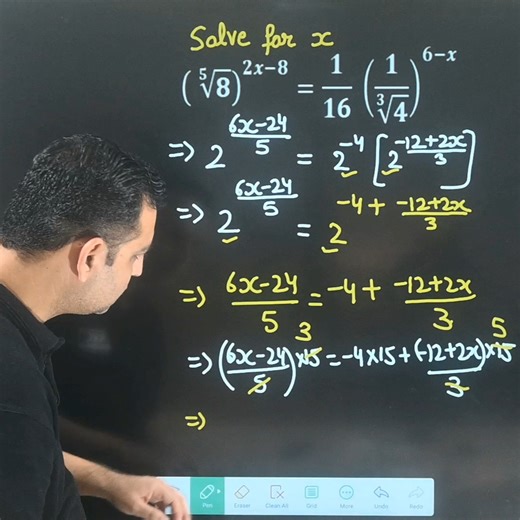 Solve for x
(⁵√8)^(2x−8) = 1/16 (1/³√4)^(6−x)
⇒ 2^((6x−24)/5) = 2^(−4) [2^((−12+2x)/3)]
⇒ 2^((6x−24)/5) = 2^(−4 + (−12+2x)/3)
⇒ (6x−24)/5 = −4 + (−12+2x)/3
3 5
⇒ ((6x−24)/5)×15 = −4×15 + ((−12+2x)/3)×15
⇒
Pen Eraser Clean All Grid More Undo Redo